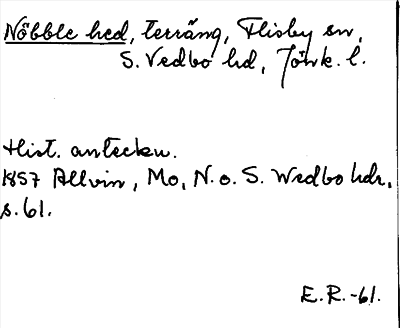 Nöbble hed, terräng, Flisby sn,
S. Vedbo hd, Jönk. l.
Hist. anteckn.
1857 Allvin, Mo, N. o. S. Wedbo hdr,
s. 61.
E. R. -61.